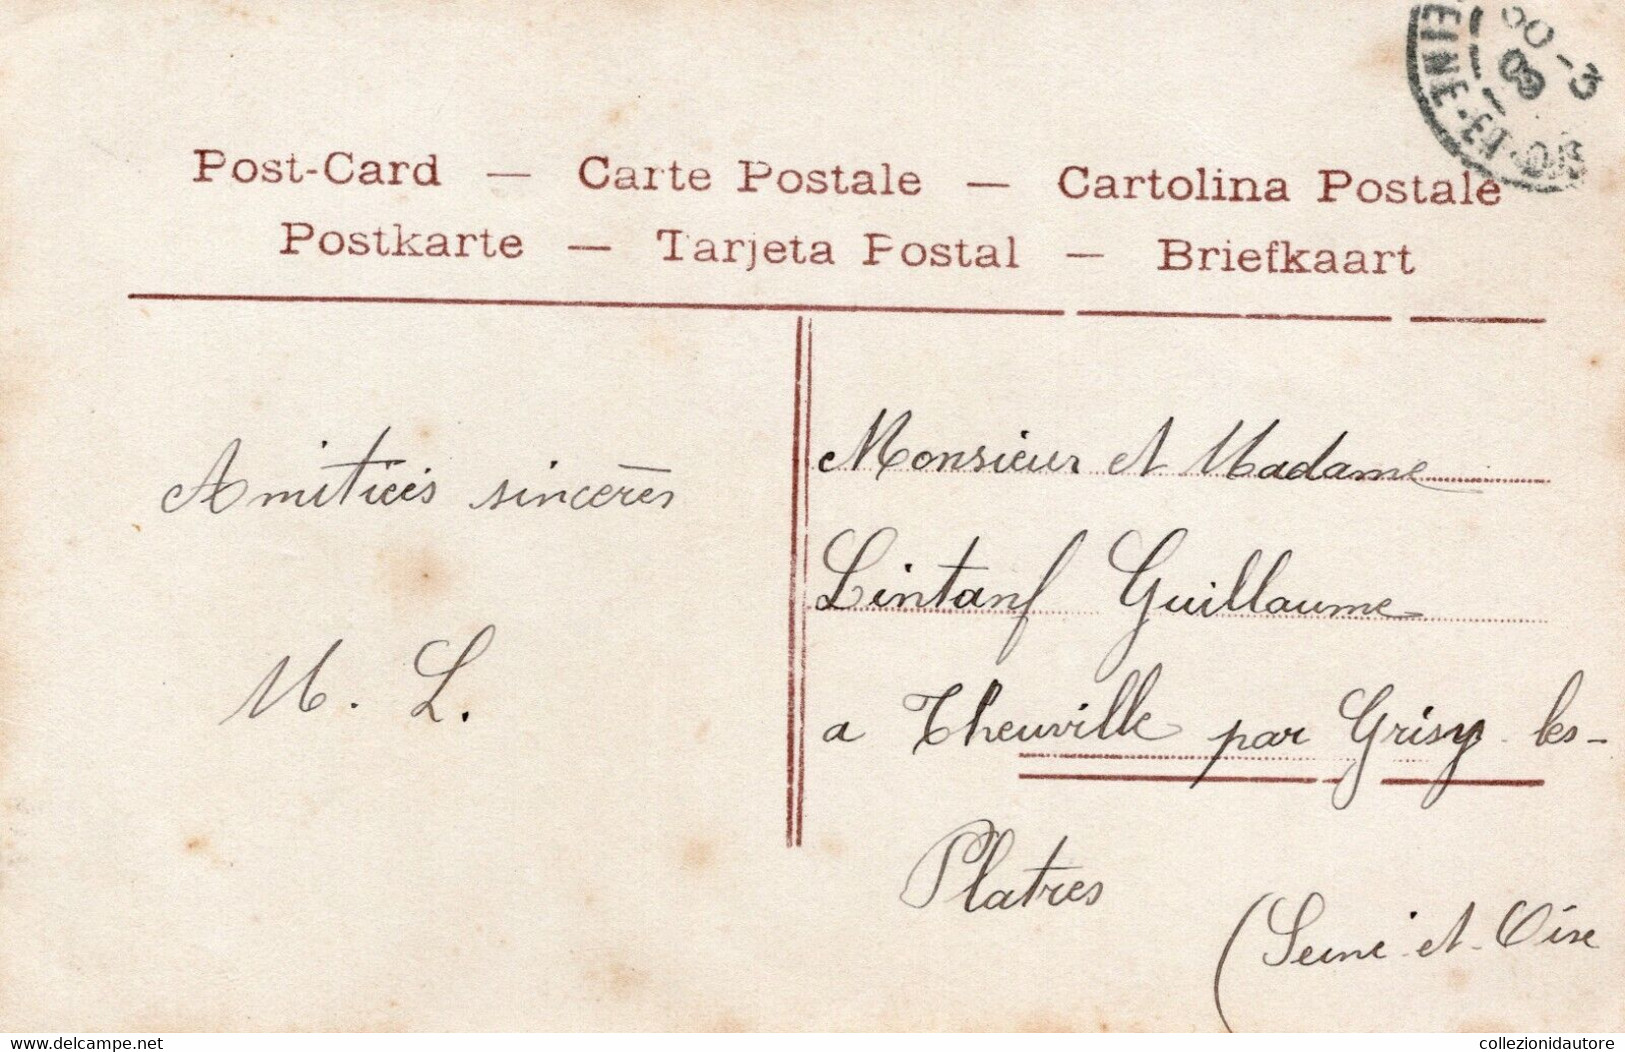 Post-Card — Carte Postale — Cartolina Postale
Postkarte — Tarjeta Postal — Briefkaart
Amitiées sincères
M. L.
Monsieur et Madame
Lintanf Guillaume
a Theuville par Grisy-les-
Platres
(Seine-et-Oise
EINE-ET-OISE
30-3
09
www.delcampe.net
collezionidautore